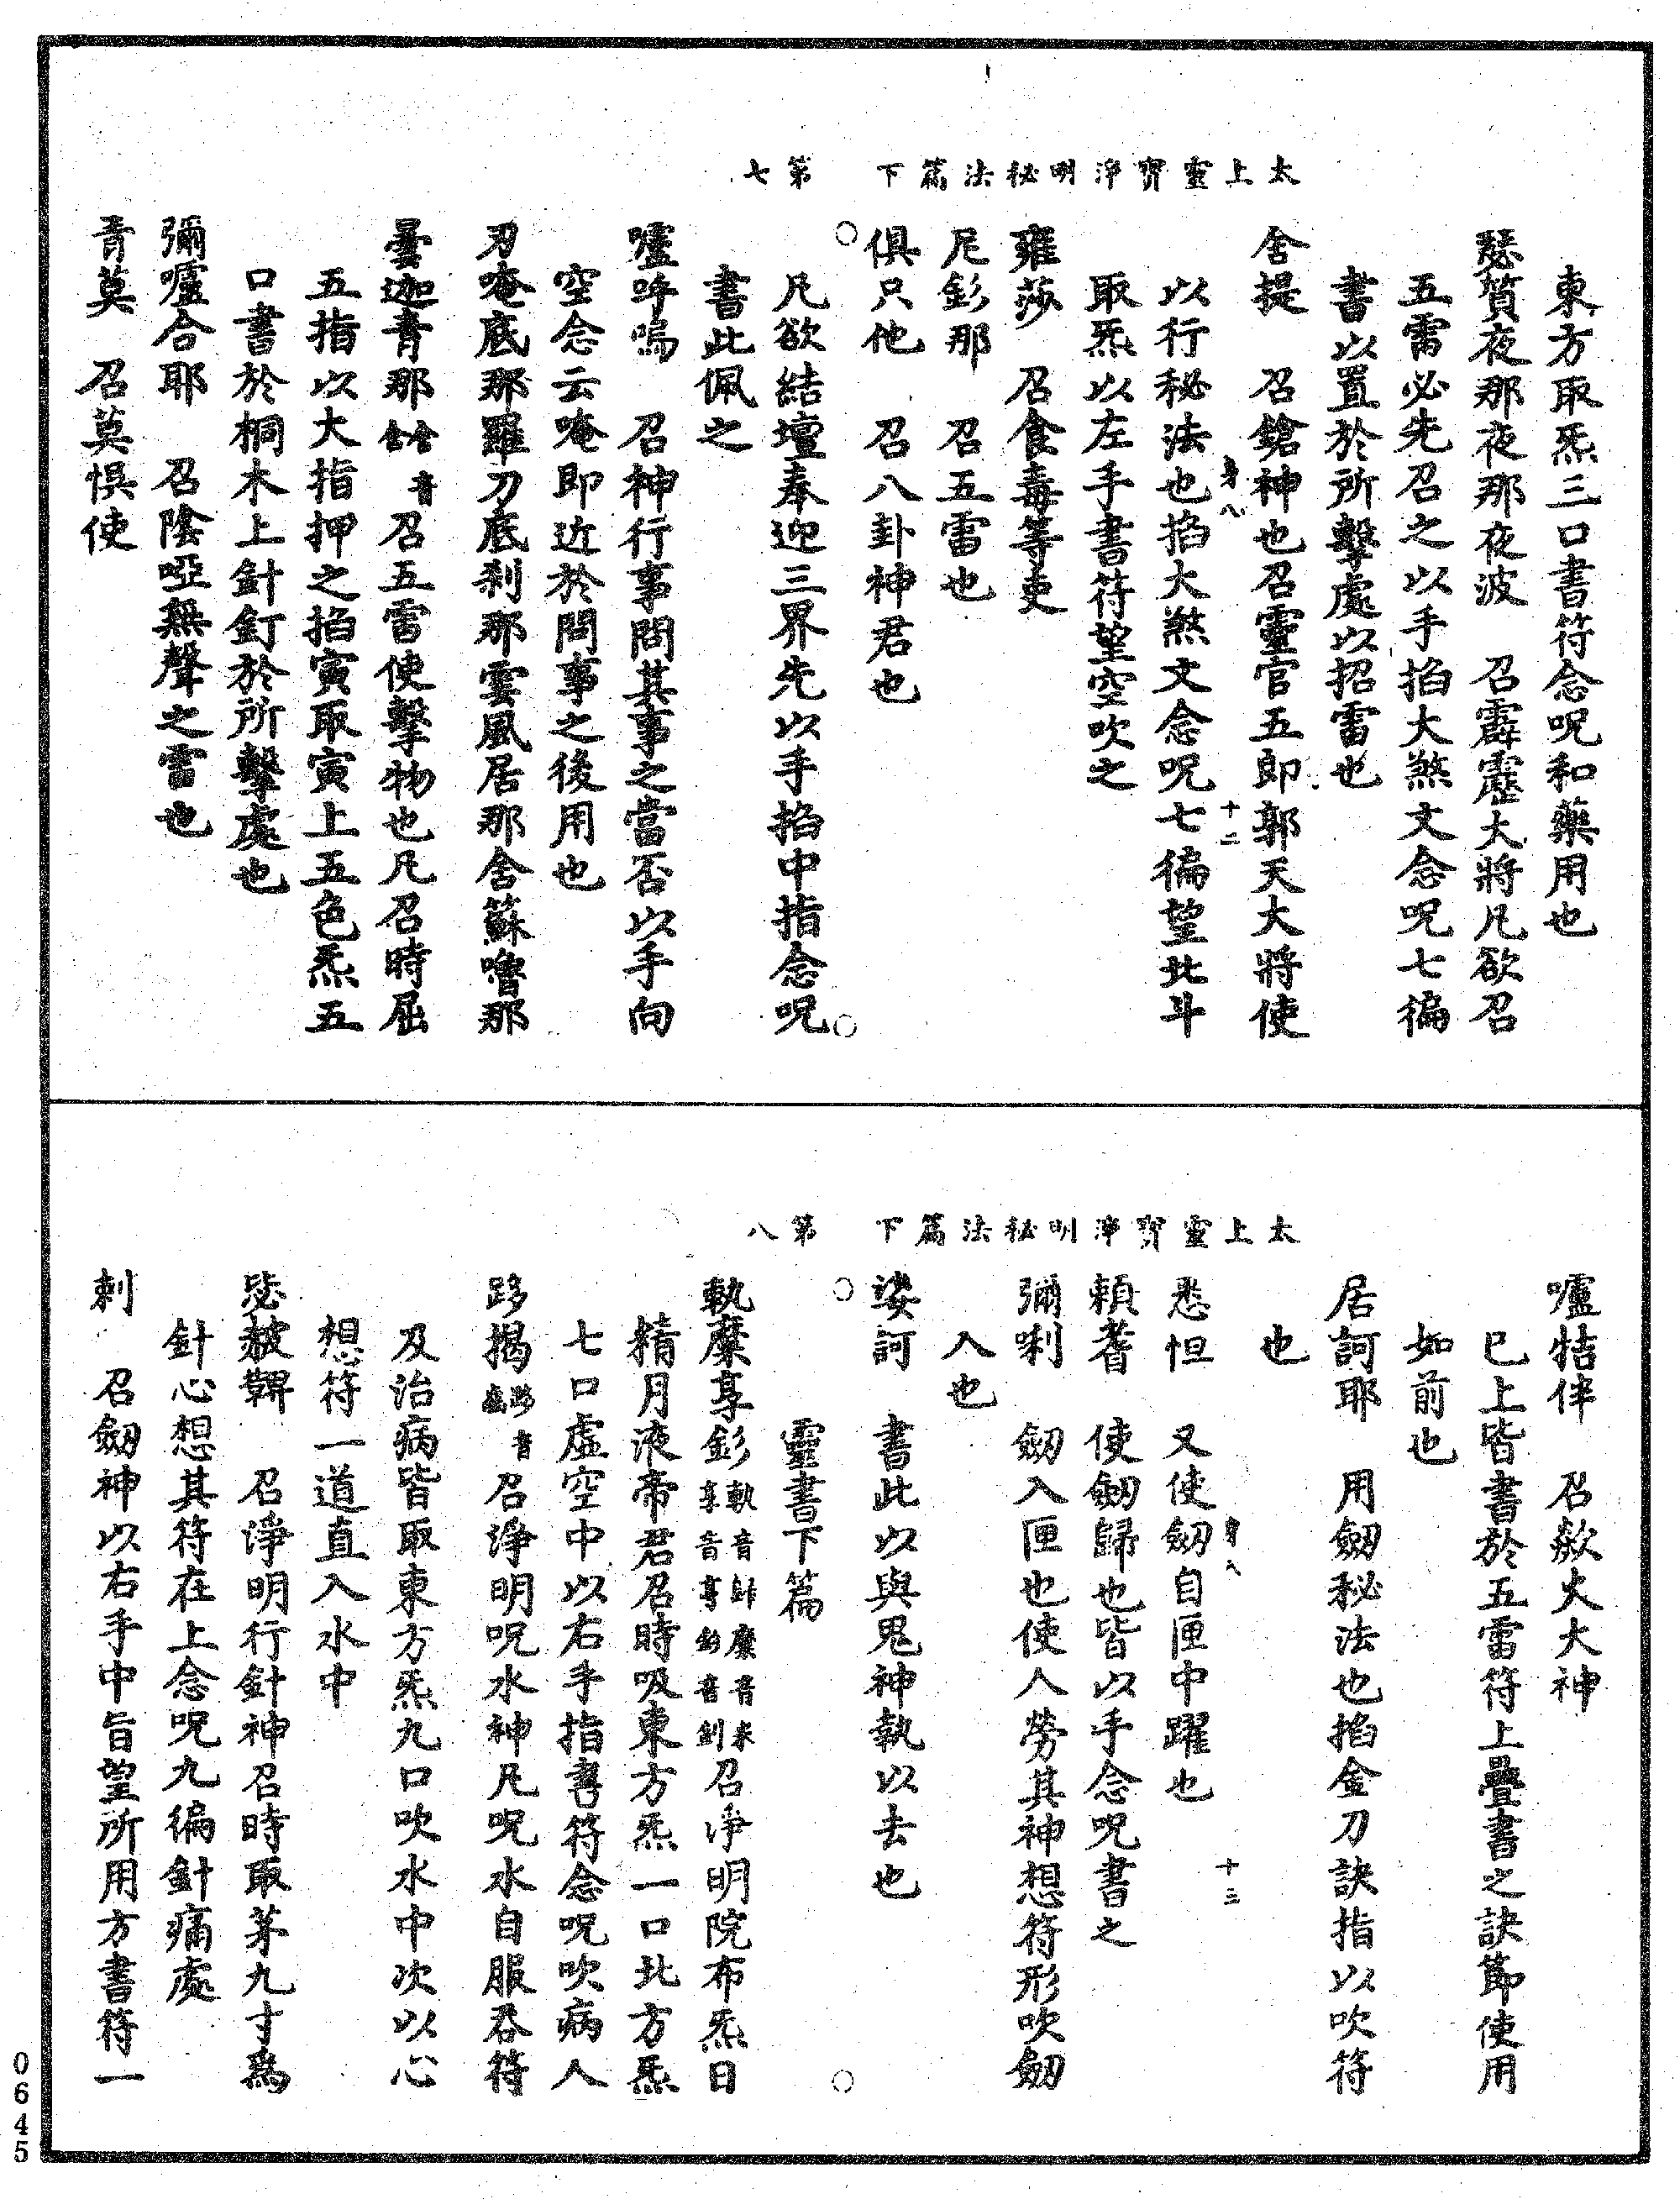 太上靈寶淨明秘法篇下　第七
東方取炁三口書符念呪和藥用也
瑟質夜那夜那夜波　召霹靂大將凡欲召
五雷必先召之以手掐大煞文念呪七徧
書以置於所擊處以招雷也
舍提　召鎗神也召靈官五郎郭天大將使
身八　十二
以行秘法也掐大煞文念呪七徧望北斗
取炁以左手書符望空吹之
雍莎　召食毒等吏
尼彭那　召五雷也
俱只他　召八卦神君也
凡欲結壇奉迎三界先以手掐中指念呪
書此佩之
嚧吽嗚　召神行事問其事之當否以手向
空念云唵即近於問事之後用也
刃唵底那羅刀底剎那雲風居那舍蘇嚕那
曇迦青那　音　召五雷使擊物也凡召時屈
五指以大指押之掐寅取寅上五色炁五
口書於桐木上針釘於所擊處也
彌嚧合耶　召陰啞無聲之雷也
青莫　召莫惧使
太上靈寶淨明秘法篇下　第八
嚧牯伴　召歘火大神
巳上皆書於五雷符上疊書之訣節使用
如前也
居訶耶　用劒秘法也掐金刀訣指以吹符
也
身八　十三
悉怛　又使劒自匣中躍也
賴耆　使劒歸也皆以手念呪書之
彌唎　劒入匣也使人勞其神想符形吹劒
入也
娑訶　書此以與鬼神執以去也
靈書下篇
執糜享彭　執音　糜音米享音亨　音　召淨明院布炁日
精月液帝君召時吸東方炁一口北方炁
七口虛空中以右手指書符念呪吹病人
路揭　音　召淨明呪水神凡呪水自服吞符
及治病皆取東方炁九口吹水中次以心
想符一道直入水中
毖皴鞞　召淨明行針神召時取茅九寸爲
針心想其符在上念呪九徧針痛處
刺　召劒神以右手中旨望所用方書符一
0645